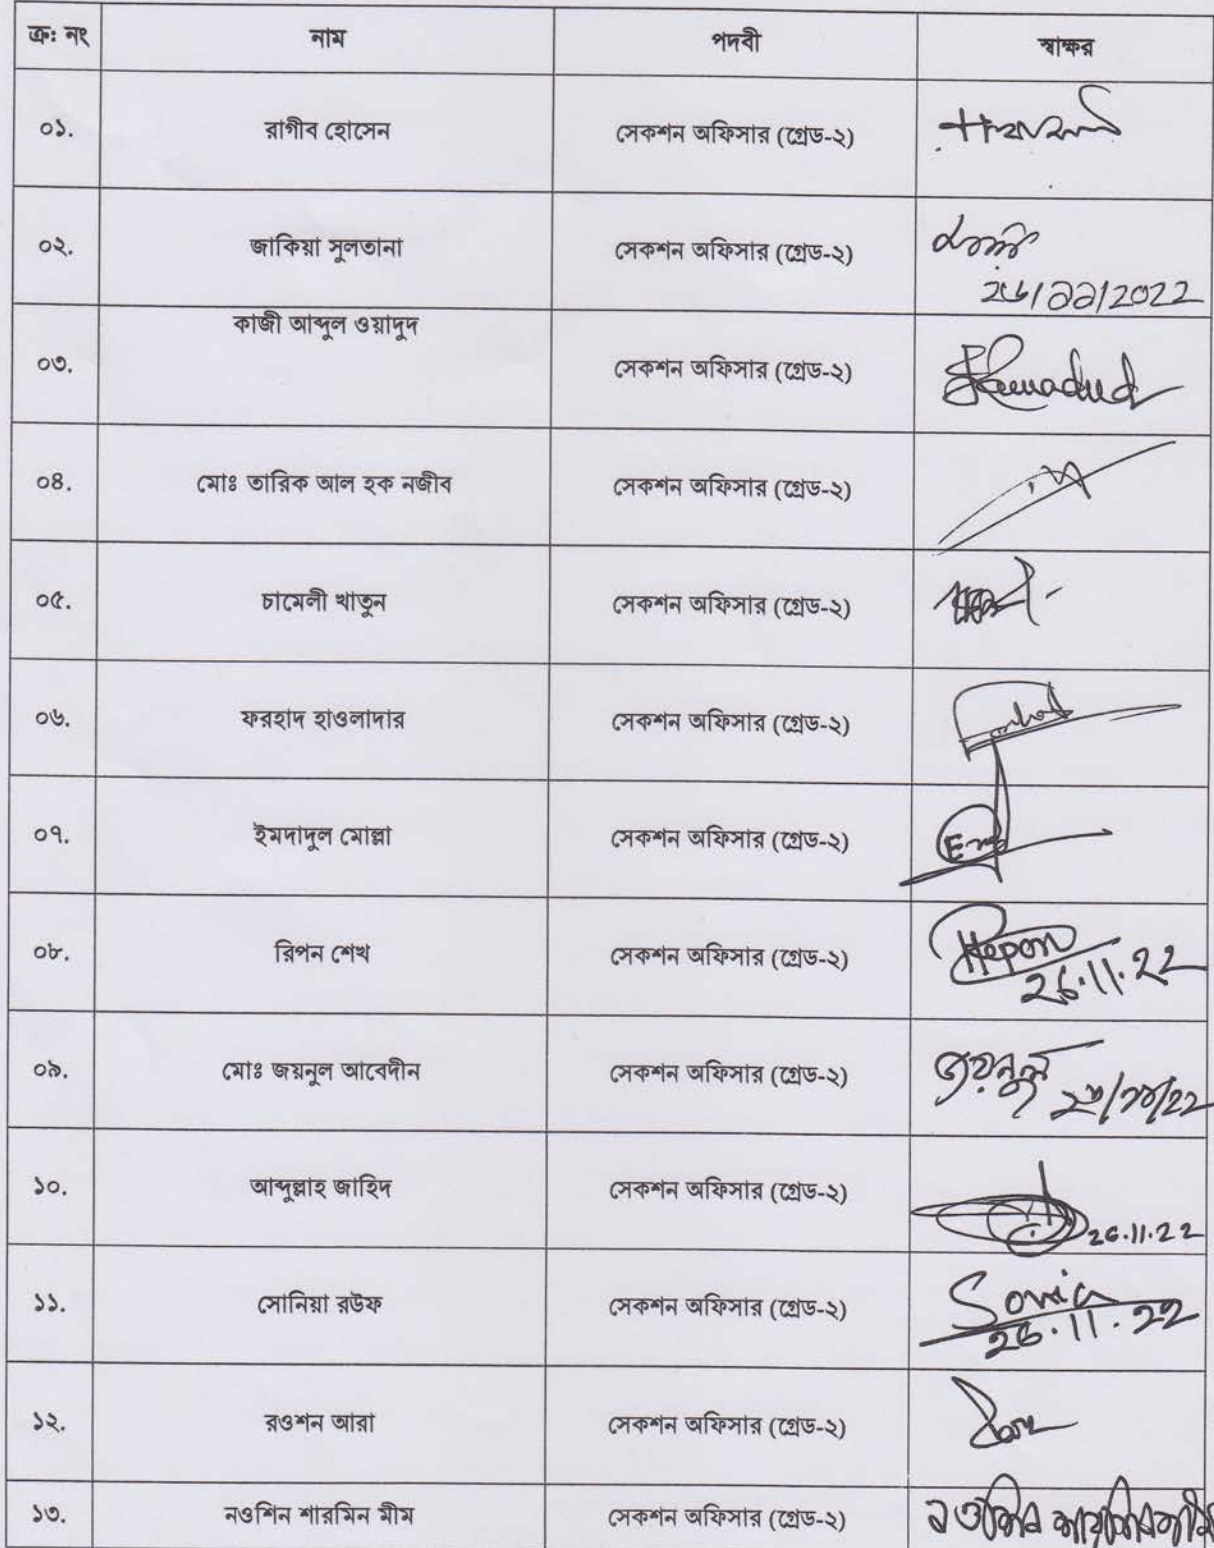 ক্র: নং নাম পদবী স্বাক্ষর
০১. রাগীব হোসেন সেকশন অফিসার (গ্রেড-২)
০২. জাকিয়া সুলতানা সেকশন অফিসার (গ্রেড-২)
২৬/১১/2022
০৩. কাজী আব্দুল ওয়াদুদ সেকশন অফিসার (গ্রেড-২)
০৪. মোঃ তারিক আল হক নজীব সেকশন অফিসার (গ্রেড-২)
০৫. চামেলী খাতুন সেকশন অফিসার (গ্রেড-২)
০৬. ফরহাদ হাওলাদার সেকশন অফিসার (গ্রেড-২)
০৭. ইমদাদুল মোল্লা সেকশন অফিসার (গ্রেড-২)
০৮. রিপন শেখ সেকশন অফিসার (গ্রেড-২)
26.11.22
০৯. মোঃ জয়নুল আবেদীন সেকশন অফিসার (গ্রেড-২) জয়নুল
১০. আব্দুল্লাহ জাহিদ সেকশন অফিসার (গ্রেড-২) 26.11.22
১১. সোনিয়া রউফ সেকশন অফিসার (গ্রেড-২) Sonia
26.11.22
১২. রওশন আরা সেকশন অফিসার (গ্রেড-২)
১৩. নওশিন শারমিন মীম সেকশন অফিসার (গ্রেড-২) নওশিন শারমিন মীম